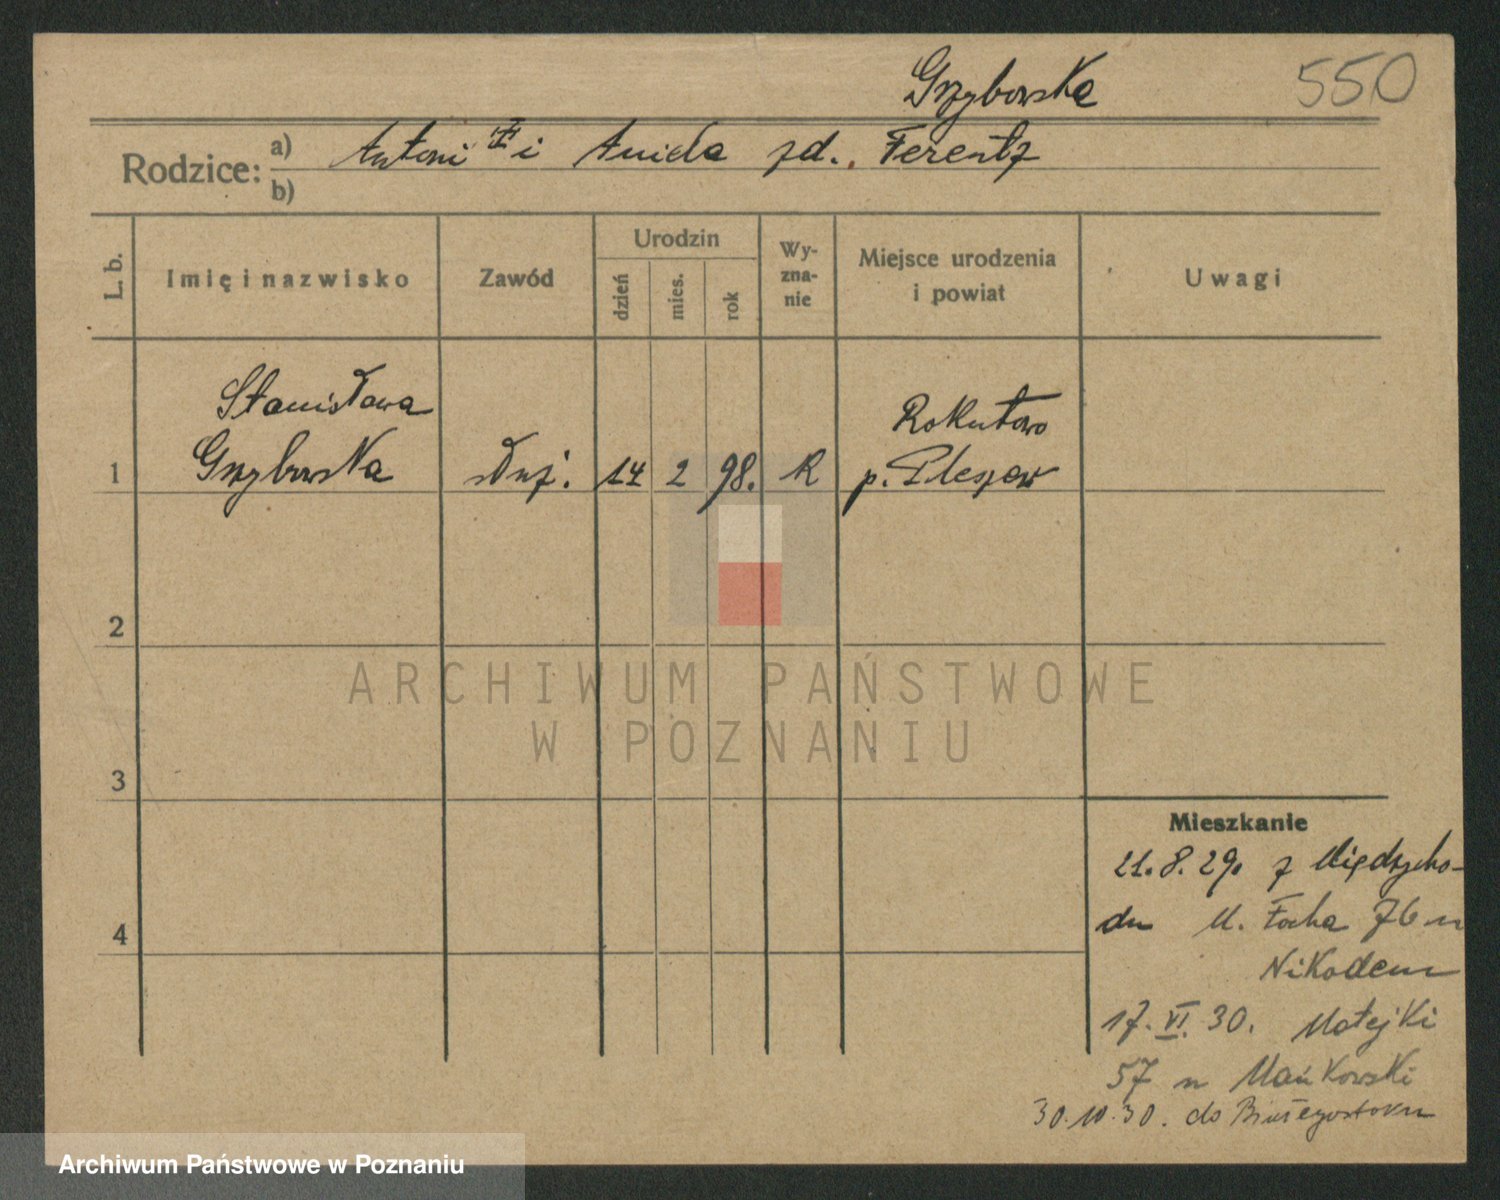 Grzybowska
550
Rodzice:
a) Antoni i Anida zd. Ferentz
b)
L. b.
Imię i nazwisko
Zawód
Urodzin
dzień
mies.
rok
Wy-
zna-
nie
Miejsce urodzenia
i powiat
Uwagi
Stanisława
Rokutowo
1 Grzybowska służ. 14 2 98. R p. Pleszew
2
3
4
ARCHIWUM PAŃSTWOWE
W POZNANIU
Mieszkanie
21.8.29. z Międzycho-
du M. Focha 76 u
Nikodem
17. VI. 30. Matejki
57 u Mańkowski
30.10.30. do Białegostoku
Archiwum Państwowe w Poznaniu